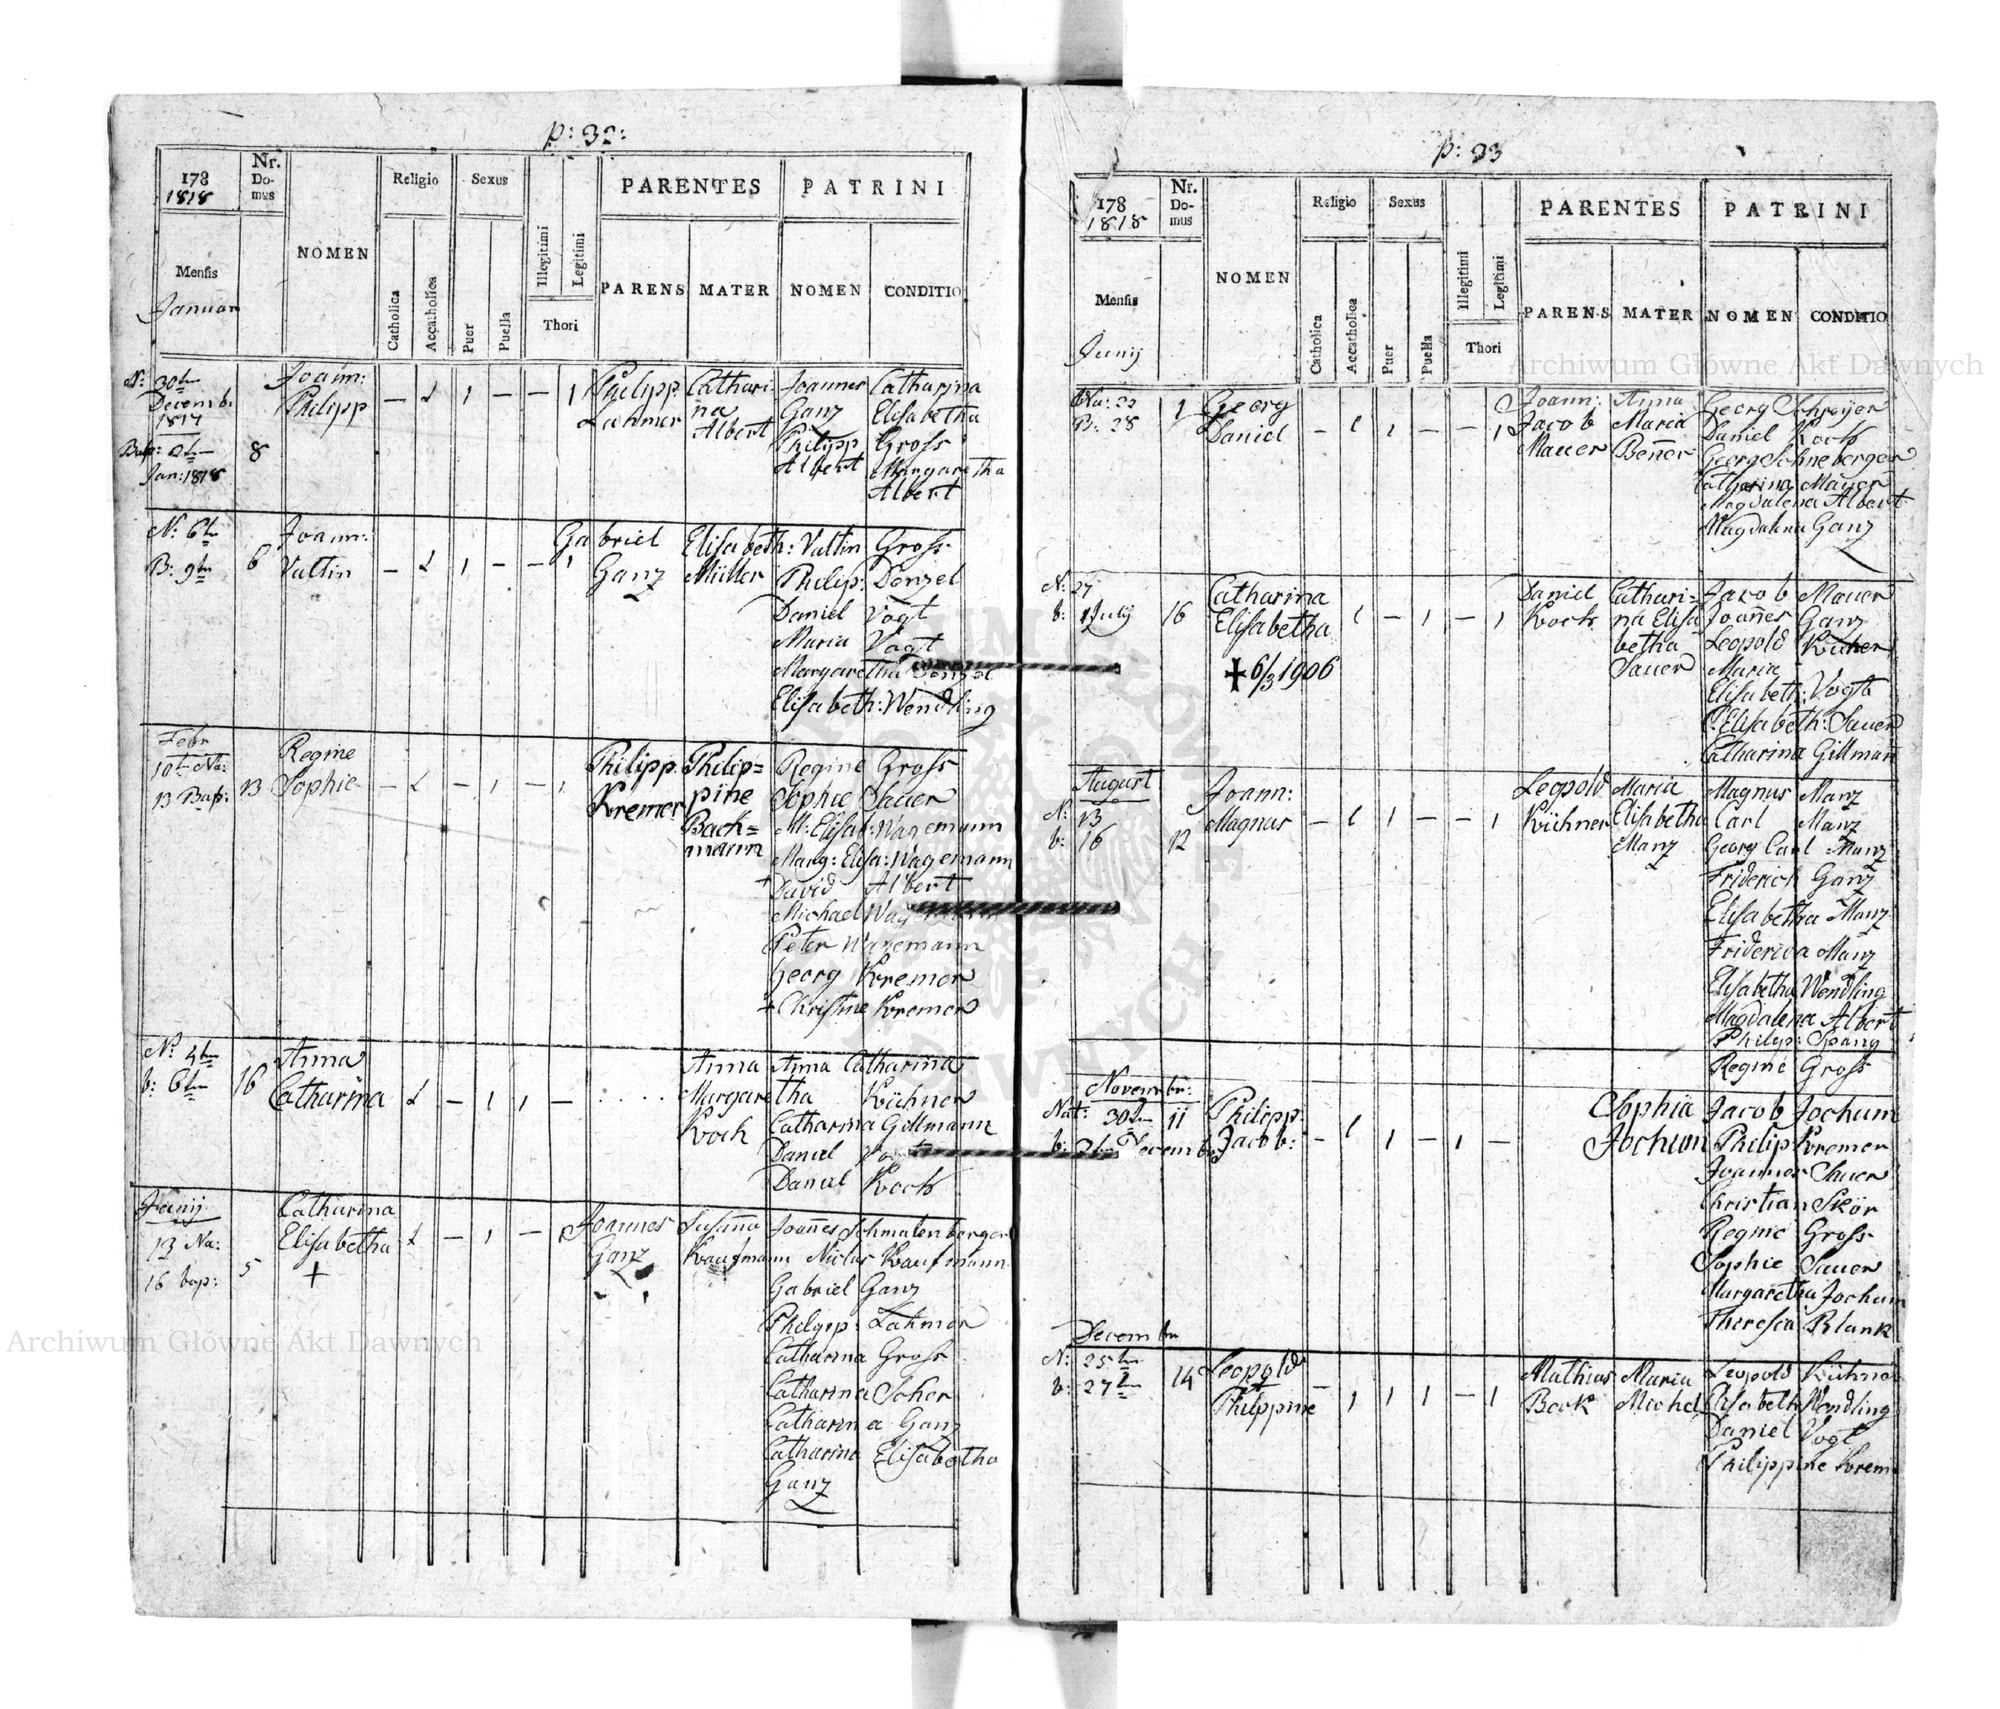 p: 32:
178
1818
Nr. Domus
NOMEN
Religio
Sexus
PARENTES
PATRINI
Mensis
Januar
Catholica
Accatholica
Puer
Puella
Illegitimi
Legitimi
Thori
PARENS
MATER
NOMEN
CONDITIO
N: 30tn Joann: Philipp Cathari- Joannes Catharina
Decemb: Philipp — 1 1 — — 1 Lahmer na Ganz Elisabetha
1817 Albert Philipp Gross
Bap: 2tn 8 Albert Margaretha
Jan: 1818 Albert
N: 6tn Joann: Gabriel Elisabeth: Valtin Gross
B: 9tn 6 Valtin — 1 1 — — 1 Ganz Müller Philip: Denzel
Daniel Vogt
Maria Vogt
Margaretha Denzel
Elisabeth: Wendling
Febr
10tn Na: Regine Philipp Philip= Regine Gross
13 Bap: 13 Sophie — 1 — 1 — 1 Kremer pine Sophie Sauer
Back= M: Elisab: Wagemann
mann Marg: Elisa: Wagemann
+ David Albert
Michael
Peter Wagemann
Georg Kremer
+ Christine Kremer
N: 4tn Anna Anna Anna Catharina
b: 6tn 16 Catharina 1 — 1 1 — . . . . Margaretha Kühner
Koch Catharina Gillmann
Daniel
Daniel Koch
Junij Catharina
13 Na: Elisabetha 1 — 1 — 1 Joannes Susanna Joannes Schmalenberger
16 bap: 5 + Ganz Kaufmann Niclas Kaufmann
Gabriel Ganz
Philipp: Lahmer
Catharina Gross
Catharina Scher
Catharina Ganz
Catharina Elisabetha
Ganz
p: 33
178
1818
Nr. Domus
NOMEN
Religio
Sexus
PARENTES
PATRINI
Mensis
Junij
Catholica
Accatholica
Puer
Puella
Illegitimi
Legitimi
Thori
PARENS
MATER
NOMEN
CONDITIO
Na: 23 1 Georg Joann: Anna Georg Schreyer
B: 28 Daniel — 1 1 — — 1 Jacob Maria Daniel Koch
Mauer Benner Georg Schneberger
Catharina Mauer
Magdalena Albert
Magdalena Ganz
N: 27 Catharina Daniel Cathari= Jacob Mauer
b: 1 Julij 16 Elisabetha 1 — 1 — 1 Koch na Elisa Joannes Ganz
betha Leopold Kühner
+ 6/3 1906 Sauer Maria
Elisabeth: Vogt
C: Elisabeth: Sauer
Catharina Gillmann
August Joann: Leopold Maria Magnus Manz
N: 13 Magnus — 1 1 — — 1 Kühner Elisabetha Carl Manz
b: 16 12 Manz Georg Carl Manz
Friderich Ganz
Elisabetha Manz
Friderica Manz
Elisabetha Wendling
Magdalena Albert
Philip: Spang
Regine Gross
Novembr:
Nat: 30tn 11 Philipp Sophia Jacob Jochum
b: Decembr Jacob: — 1 1 — 1 — Jochum Philip Kremer
Joannes Sauer
Christian Skör
Regine Gross
Sophie Sauer
Margaretha Jochum
Theresia Blank
Decembr
N: 25tn 14 Leopold Mathias Maria Leopold Kühner
b: 27tn Philippine — 1 1 1 — 1 Beck Michel Elisabeth Wendling
Daniel Vogt
Philippine Krem
Archiwum Główne Akt Dawnych
Archiwum Główne Akt Dawnych